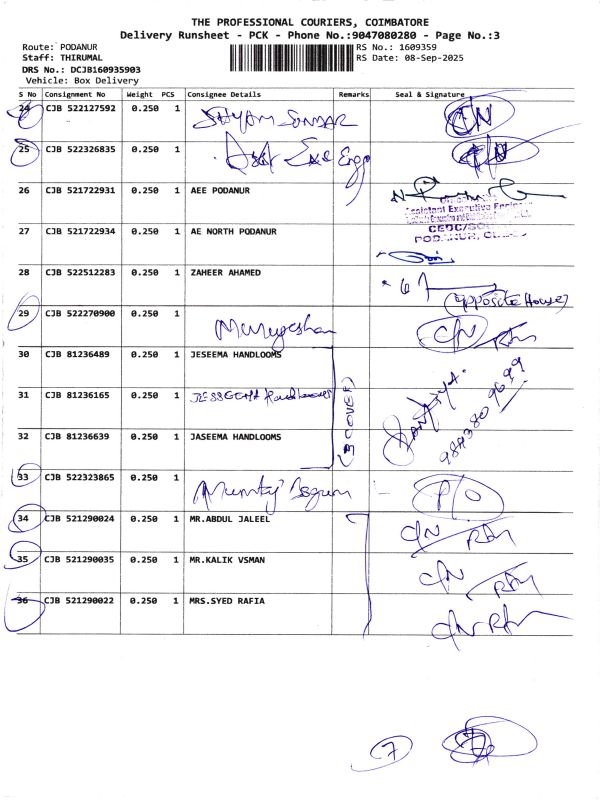 THE PROFESSIONAL COURIERS, COIMBATORE
Delivery Runsheet - PCK - Phone No.:9047080280 - Page No.:3
Route: PODANUR RS No.: 1609359
Staff: THIRUMAL RS Date: 08-Sep-2025
DRS No.: DCJB160935903
Vehicle: Box Delivery
S No Consignment No Weight PCS Consignee Details Remarks Seal & Signature
24 CJB 522127592 0.250 1 C/N
25 CJB 522326835 0.250 1
26 CJB 521722931 0.250 1 AEE PODANUR
Assistant Executive Engineer
27 CJB 521722934 0.250 1 AE NORTH PODANUR
28 CJB 522512283 0.250 1 ZAHEER AHAMED
(opposite House)
29 CJB 522270900 0.250 1 Murugeshan C/N
30 CJB 81236489 0.250 1 JESEEMA HANDLOOMS
31 CJB 81236165 0.250 1 (3 COVER)
32 CJB 81236639 0.250 1 JASEEMA HANDLOOMS
33 CJB 522323865 0.250 1 Mumtaj Begum
34 CJB 521290024 0.250 1 MR.ABDUL JALEEL C/N
35 CJB 521290035 0.250 1 MR.KALIK VSMAN C/N
36 CJB 521290022 0.250 1 MRS.SYED RAFIA C/N
7